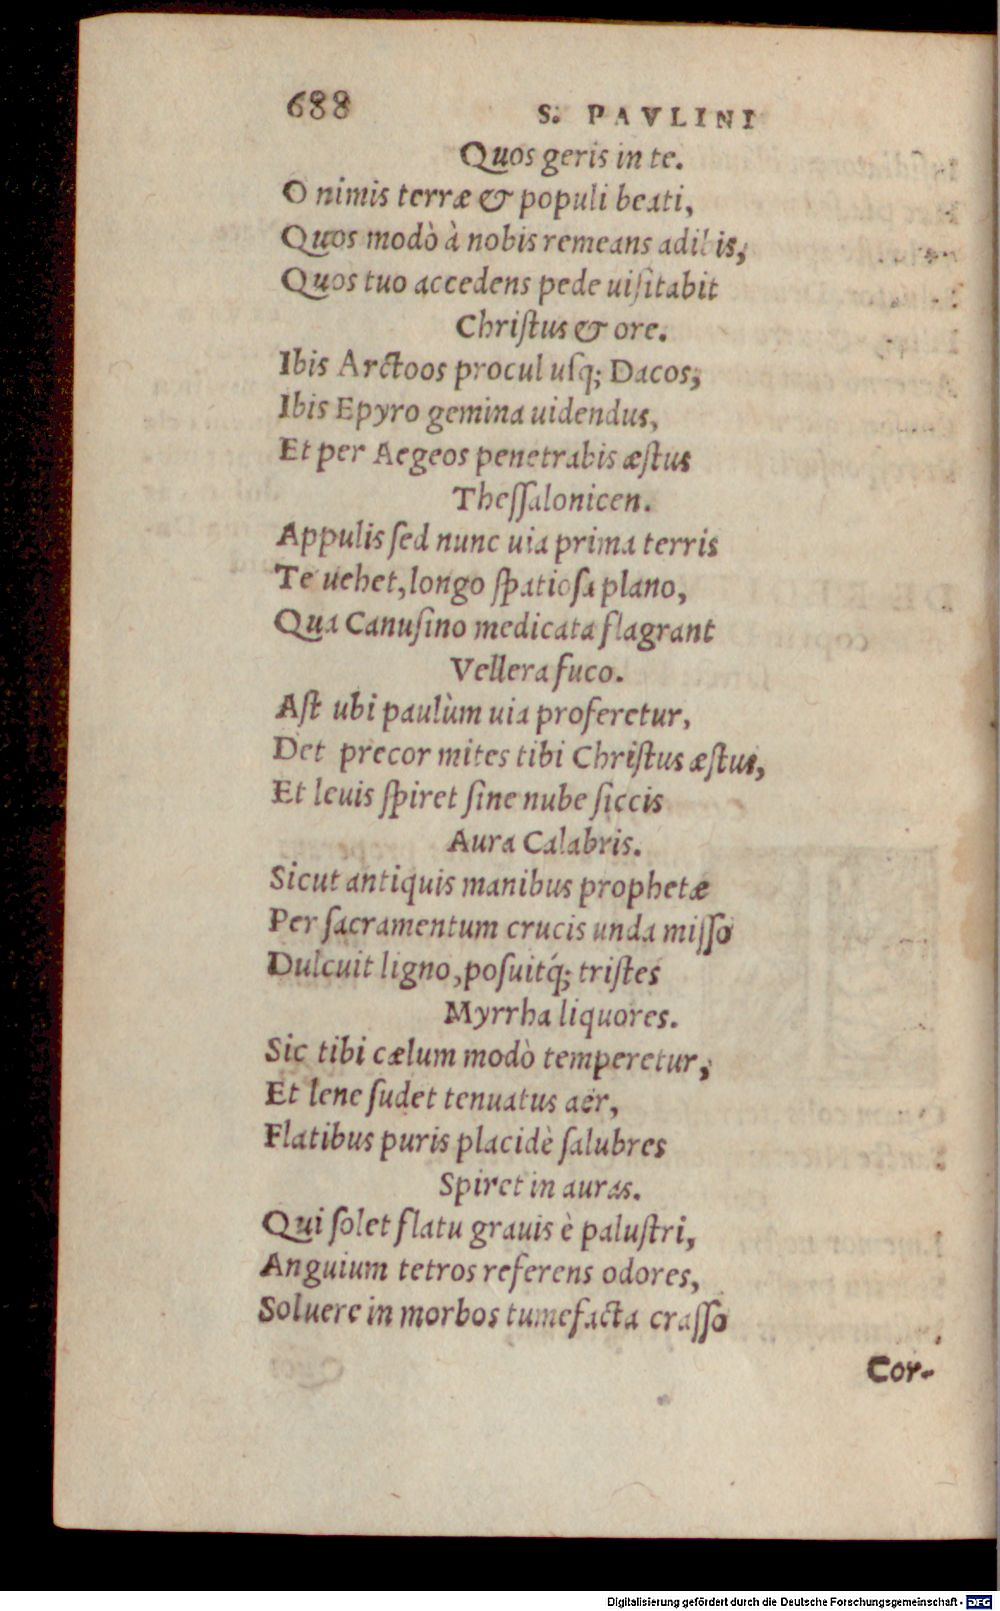 688 S. PAVLINI
Quos geris in te.
O nimis terræ & populi beati,
Quos modò à nobis remeans adibis,
Quos tuo accedens pede uiſitabit
Chriſtus & ore.
Ibis Arctoos procul uſq; Dacos,
Ibis Epyro gemina uidendus,
Et per Aegeos penetrabis æſtus
Theſſalonicen.
Appulis ſed nunc uia prima terris
Te uehet, longo ſpatioſa plano,
Qua Canuſino medicata flagrant
Vellera fuco.
Aſt ubi paulùm uia proferetur,
Det precor mites tibi Chriſtus æſtus,
Et leuis ſpiret ſine nube ſiccis
Aura Calabris.
Sicut antiquis manibus prophetæ
Per ſacramentum crucis unda miſſo
Dulcuit ligno, poſuitq́; triſtes
Myrrha liquores.
Sic tibi cælum modò temperetur,
Et lene ſudet tenuatus aër,
Flatibus puris placidè ſalubres
Spiret in auras.
Qui ſolet flatu grauis è paluſtri,
Anguium tetros referens odores,
Soluere in morbos tumefacta craſſo
Cor-
Digitalisierung gefördert durch die Deutsche Forschungsgemeinschaft - DFG